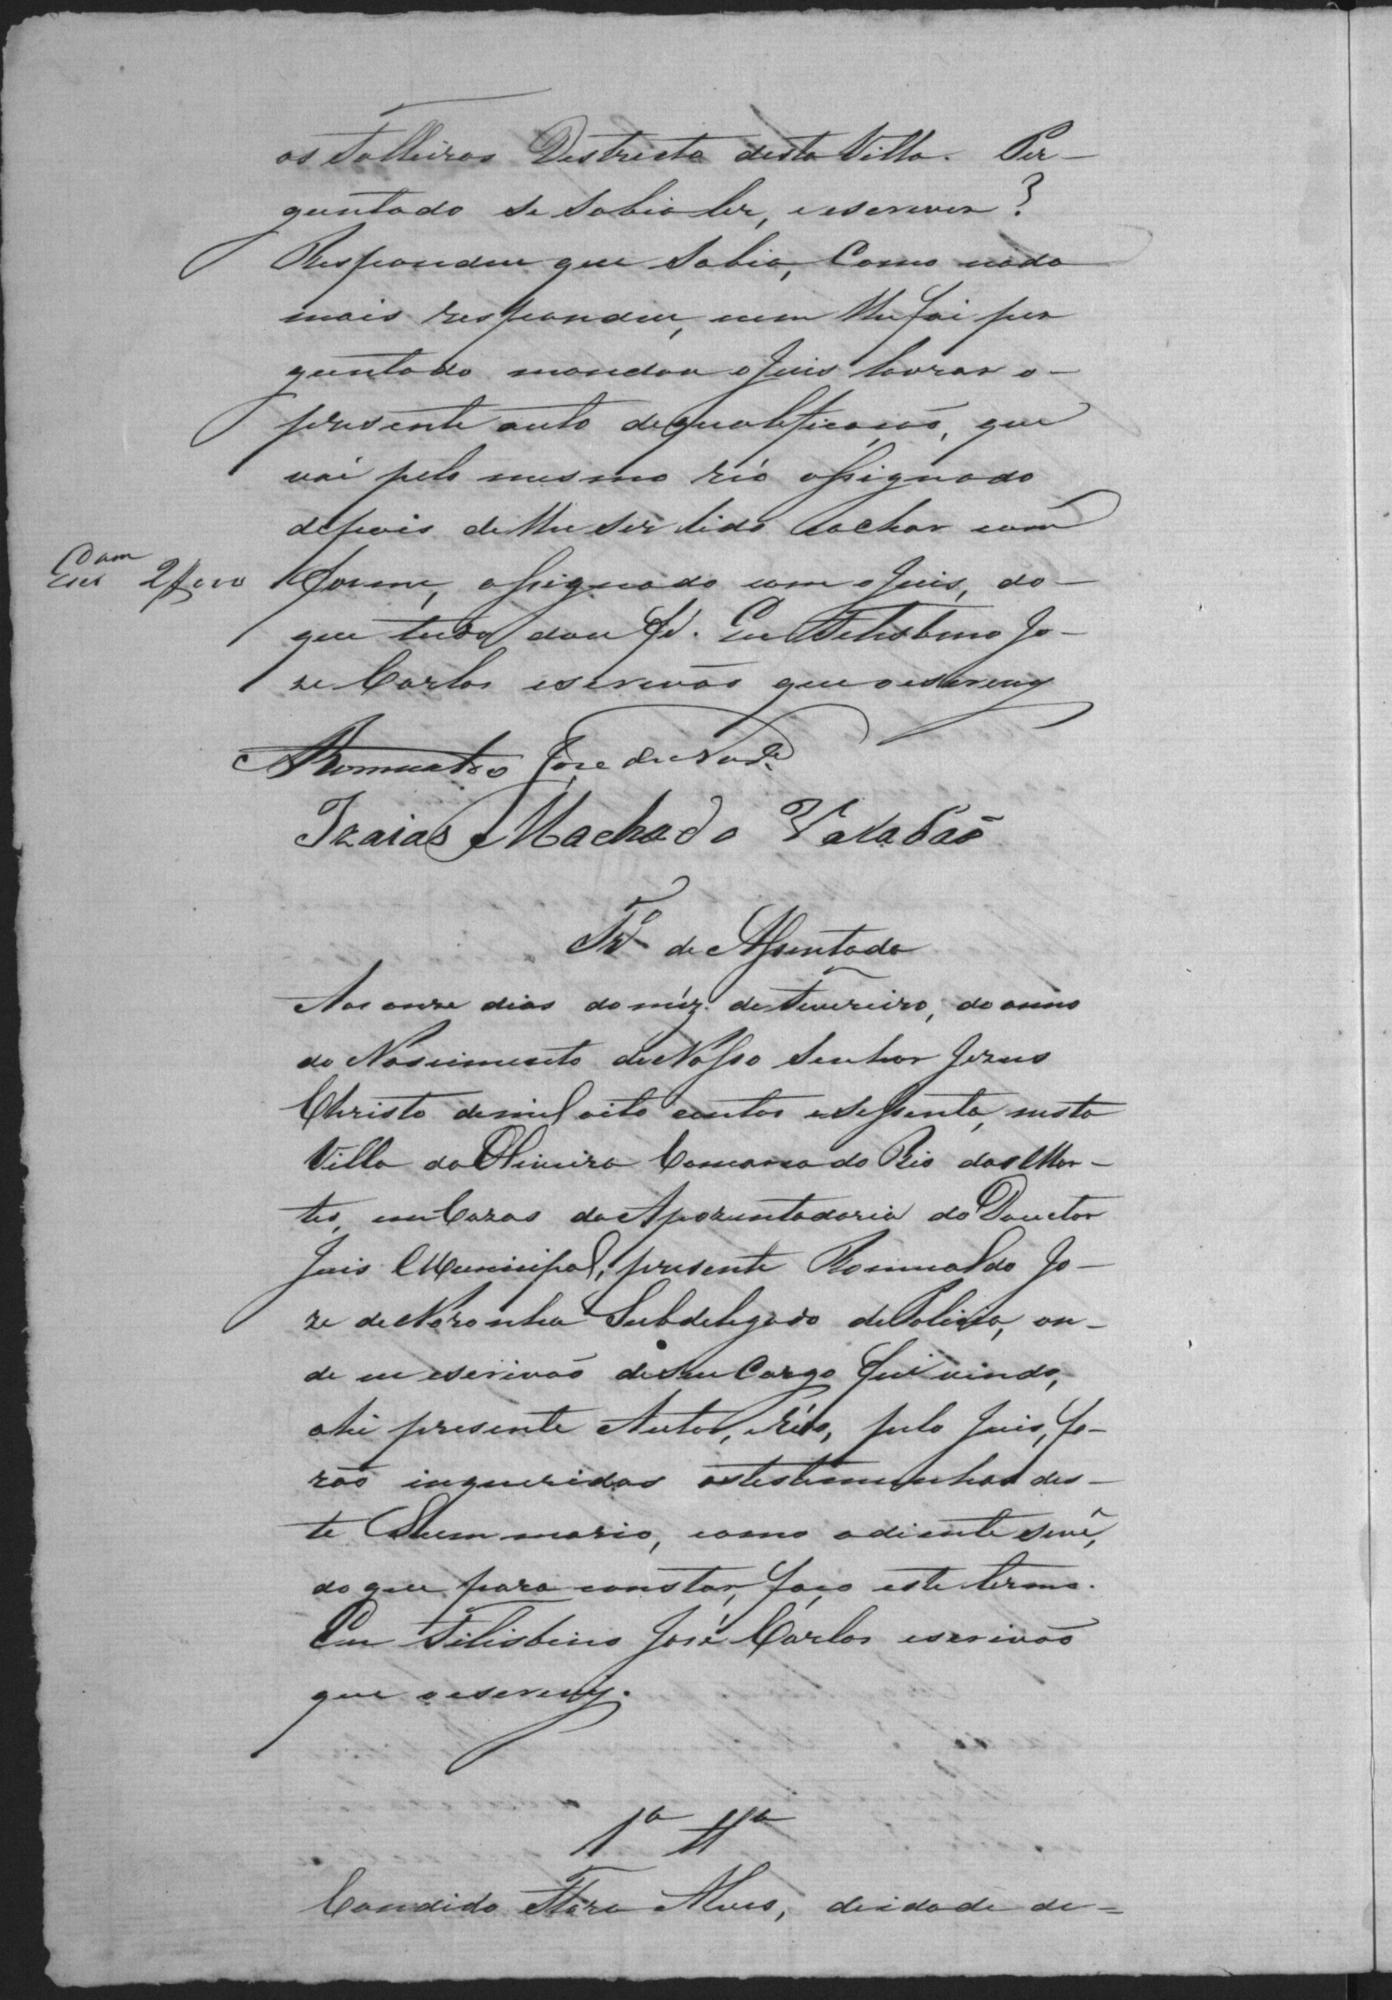 os Talheiros Destricto desta Villa. Per-
guntado se sabia ler, e escrever?
Respondeu que sabia, Como nada
mais respondeu, nem lhe foi per
guntado mandou o Juis lavrar o
presente auto de qualificação, que
vai pelo mesmo réo assignado
depois de lhe ser lido e achar com
forme, assignado com o Juis, do
que tudo dou fé. Eu Felisbino Jo-
ze Carlos escrivão que o escrevy
Romualdo Jose de
Izaias Machado
Tº de Assentada
Aos onze dias do mêz de Fevereiro, do anno
do Nascimento de Nosso Senhor Jezus
Christo de mil oito centos e sessenta, nesta
Villa da Oliveira Comarca do Rio das Mor-
tes, em Cazas da Apozentadoria do Douctor
Juis Municipal, presente Romualdo Jo-
ze de Noronha Subdelegado de Policia, on-
de eu escrivão de seu Cargo fui vindo,
ahi presente Autor, e Réo, pelo Juis, fo-
rão inqueridas as testemunhas des-
te Summario, como adiente se vê,
do que para constar, faço este termo.
Eu Felisbino José Carlos escrivão
que o escrevy.
1ª Ttª
Candido Alves, de idade de=